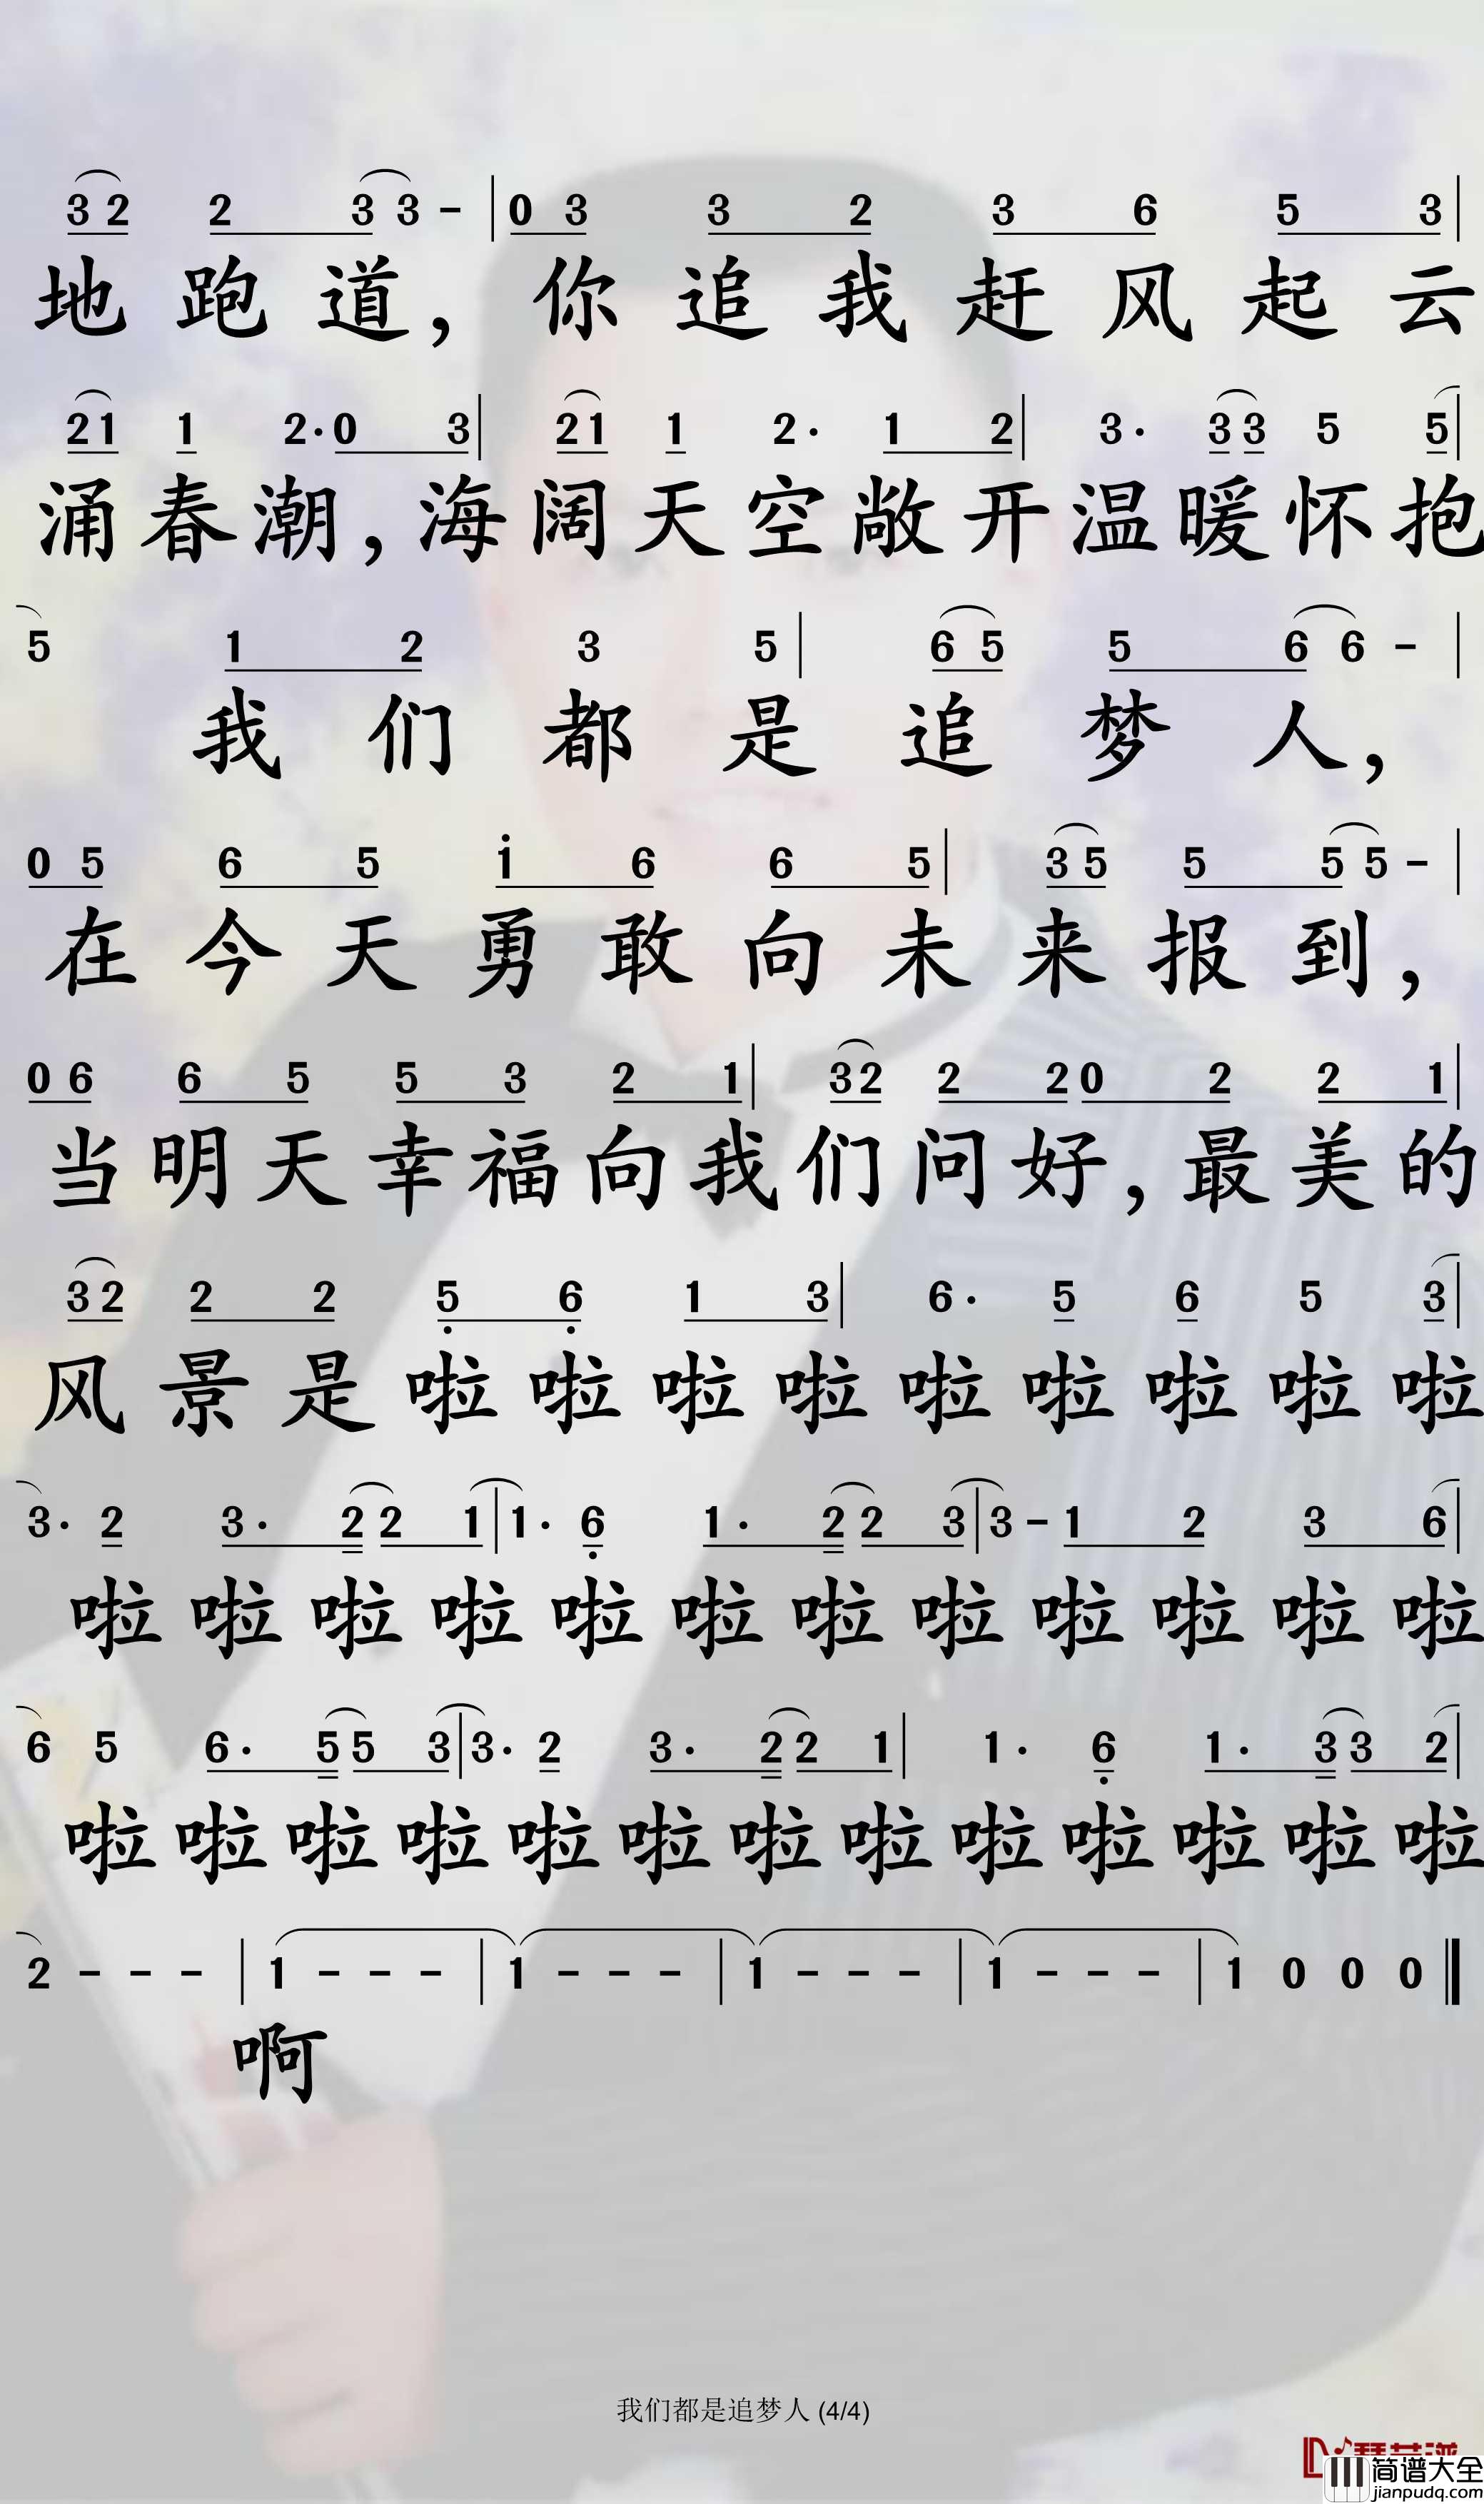 3 2 2 3 3 - | 0 3 3 2 3 6 5 3 |
地跑道，你追我赶风起云
2 1 1 2· 0 3 | 2 1 1 2· 1 2 | 3· 3 3 5 5 |
涌春潮，海阔天空敞开温暖怀抱
5 1 2 3 5 | 6 5 5 6 6 - |
我们都是追梦人，
0 5 6 5 i 6 6 5 | 3 5 5 5 5 - |
在今天勇敢向未来报到，
0 6 6 5 5 3 2 1 | 3 2 2 2 0 2 2 1 |
当明天幸福向我们问好，最美的
3 2 2 2 5 6 1 3 | 6· 5 6 5 3 |
风景是啦啦啦啦啦啦啦啦啦
3· 2 3· 2 2 1 | 1· 6 1· 2 2 3 | 3 - 1 2 3 6 |
啦啦啦啦啦啦啦啦啦啦啦啦
6 5 6· 5 5 3 | 3· 2 3· 2 2 1 | 1· 6 1· 3 3 2 |
啦啦啦啦啦啦啦啦啦啦啦啦啦
2 - - - | 1 - - - | 1 - - - | 1 - - - | 1 - - - | 1 0 0 0 ‖
啊
我们都是追梦人 (4/4)
简谱大全
jianpudq.com